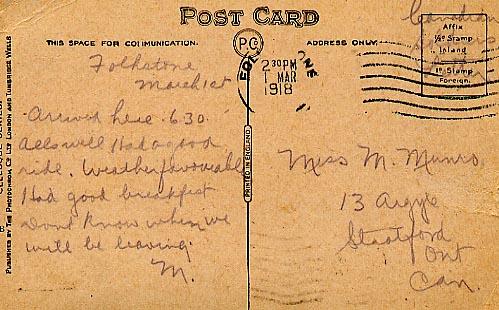 POST CARD
THIS SPACE FOR COMMUNICATION.
ADDRESS ONLY.
P C
Affix
½d Stamp
Inland
1d Stamp
Foreign.
Canadian
FOLKESTONE
2 30PM
1 MAR
1918
Folkstone
March 1st
Arrived here 6.30
All's well Had a good
ride. Weather favourable
Had good breakfast
Dont know when we
will be leaving.
M.
Miss M. Munro,
13 Argyle
Stratford
Ont
Can.
PRINTED IN ENGLAND
PUBLISHED BY THE PHOTOCHROM Co Ltd LONDON AND TUNBRIDGE WELLS